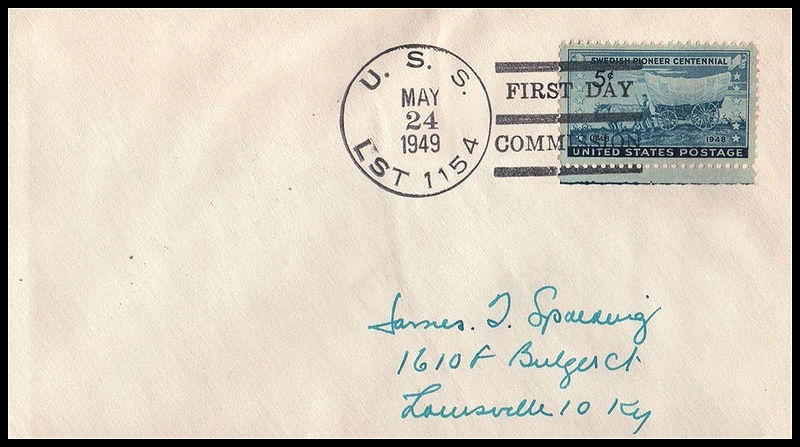 U. S. S.
MAY
24
1949
LST 1154
FIRST DAY
COMMISSION
SWEDISH PIONEER CENTENNIAL
5¢
1948
UNITED STATES POSTAGE
James. T. Spalding
1610F Bulger Ct
Louisville 10 Ky